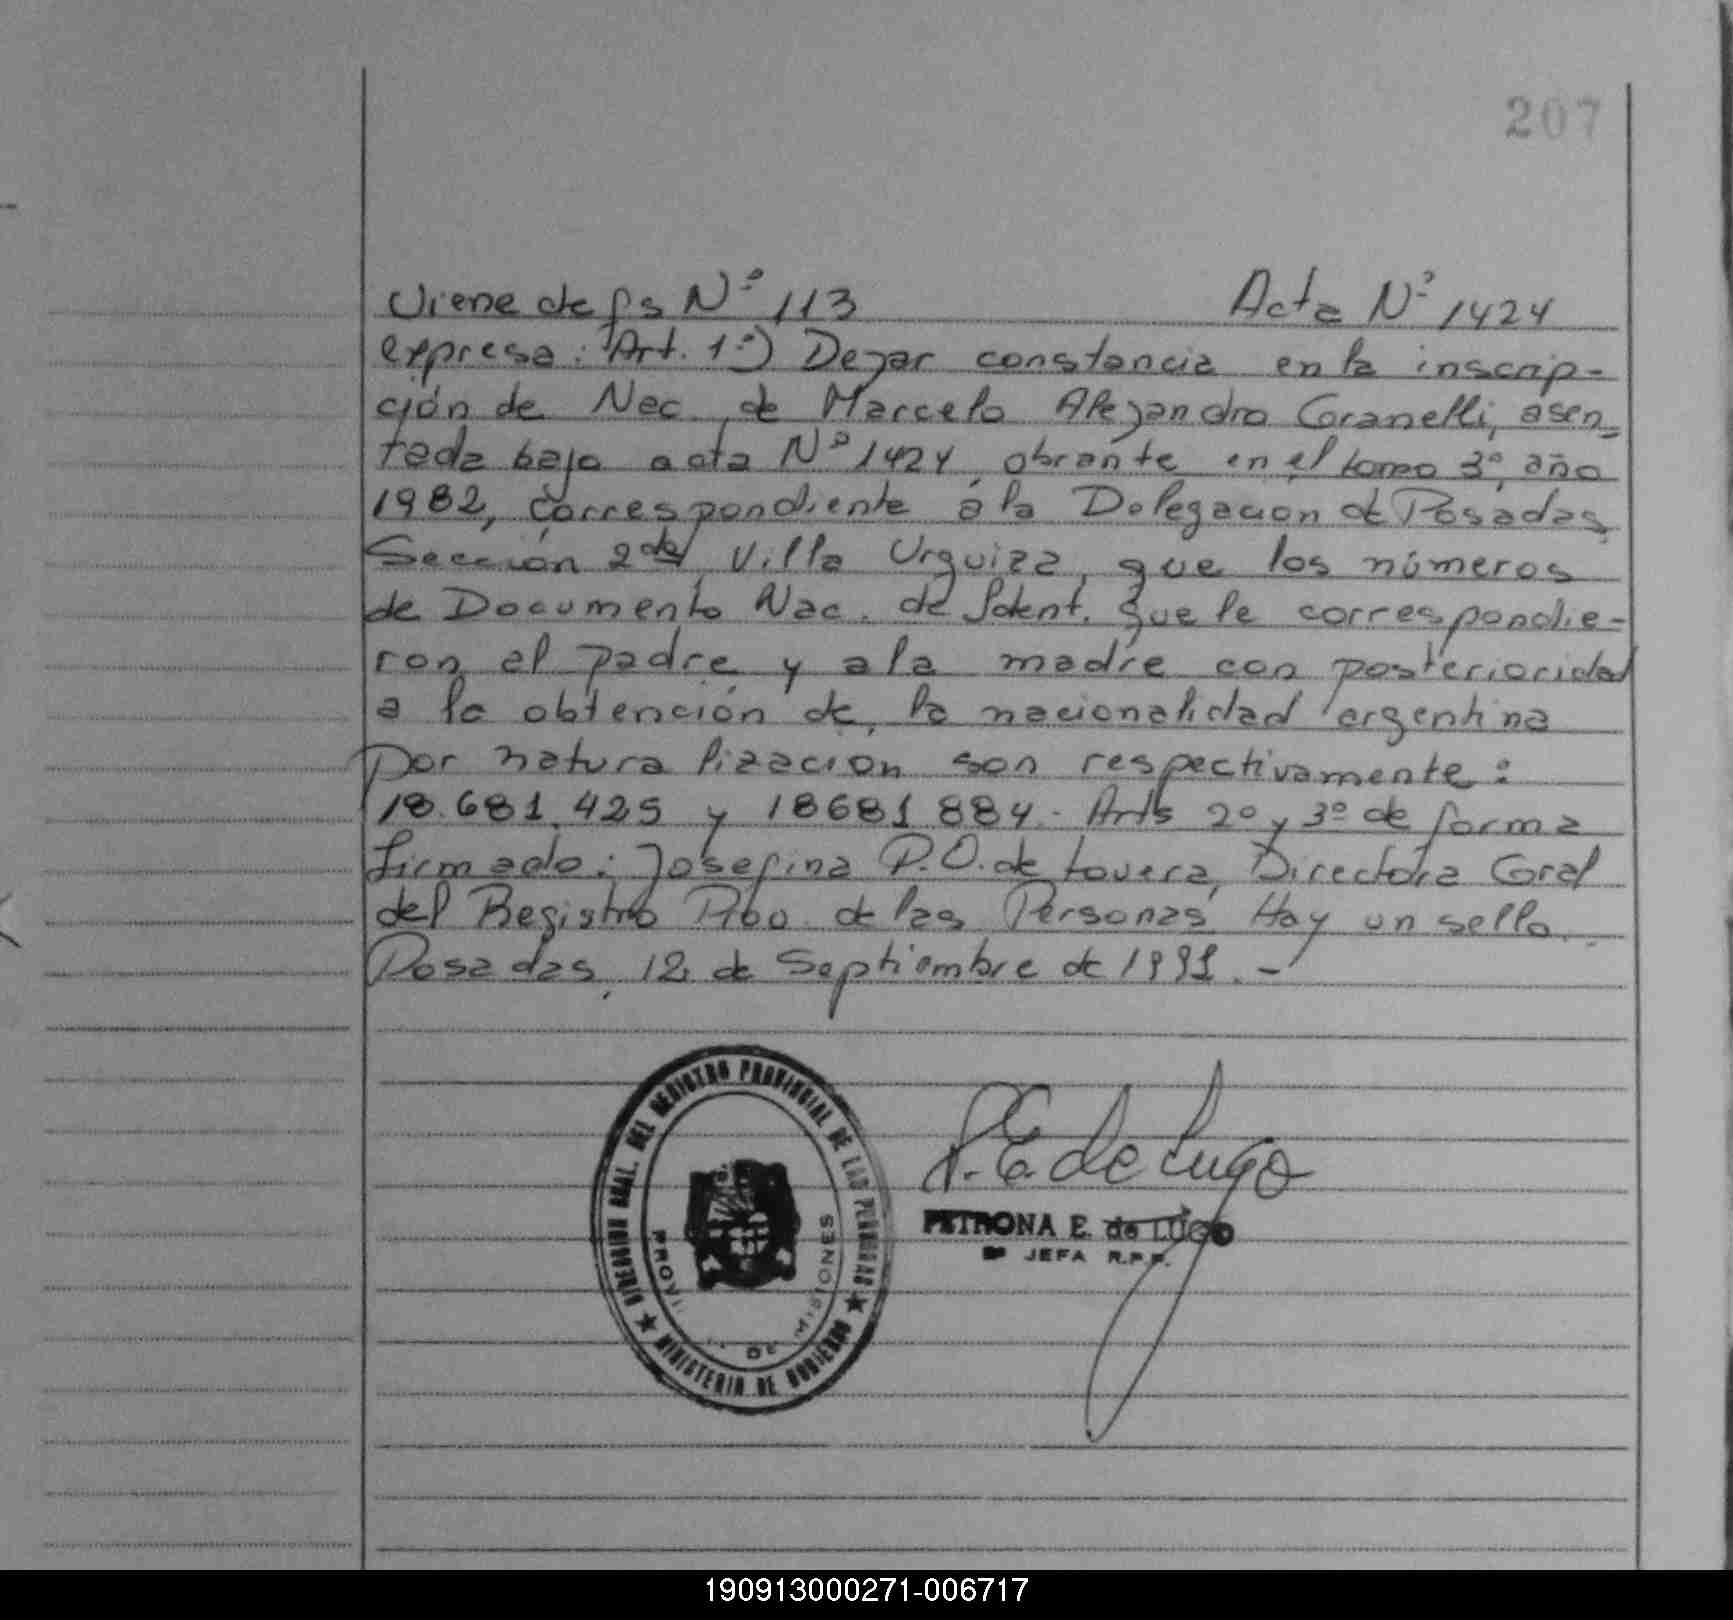 207
Viene de fs Nº 113 Acta Nº 1424
expresa: Art. 1º) Dejar constancia en la inscrip-
ción de Nac. de Marcelo Alejandro Granelli, asen-
tada bajo acta Nº 1424, obrante en el tomo 3º, año
1982, correspondiente a la Delegacion de Posadas
Sección 2da, Villa Urquiza, que los números
de Documento Nac. de Ident. que le correspondie-
ron al padre y a la madre con posterioridad
a la obtención de la nacionalidad argentina
por naturalizacion son respectivamente:
18.681.425 y 18681884.- Arts 2º y 3º de forma
firmado: Josefina P.O. de Lovera, Directora Gral
del Registro Prov. de las Personas Hay un sello.
Posadas, 12 de Septiembre de 1991.-
DIRECCION GRAL. DEL REGISTRO PROVINCIAL DE LAS PERSONAS
MINISTERIO DE GOBIERNO
DE MISIONES
P.E. de Lugo
PETRONA E. de LUGO
JEFA R.P.P.
190913000271-006717